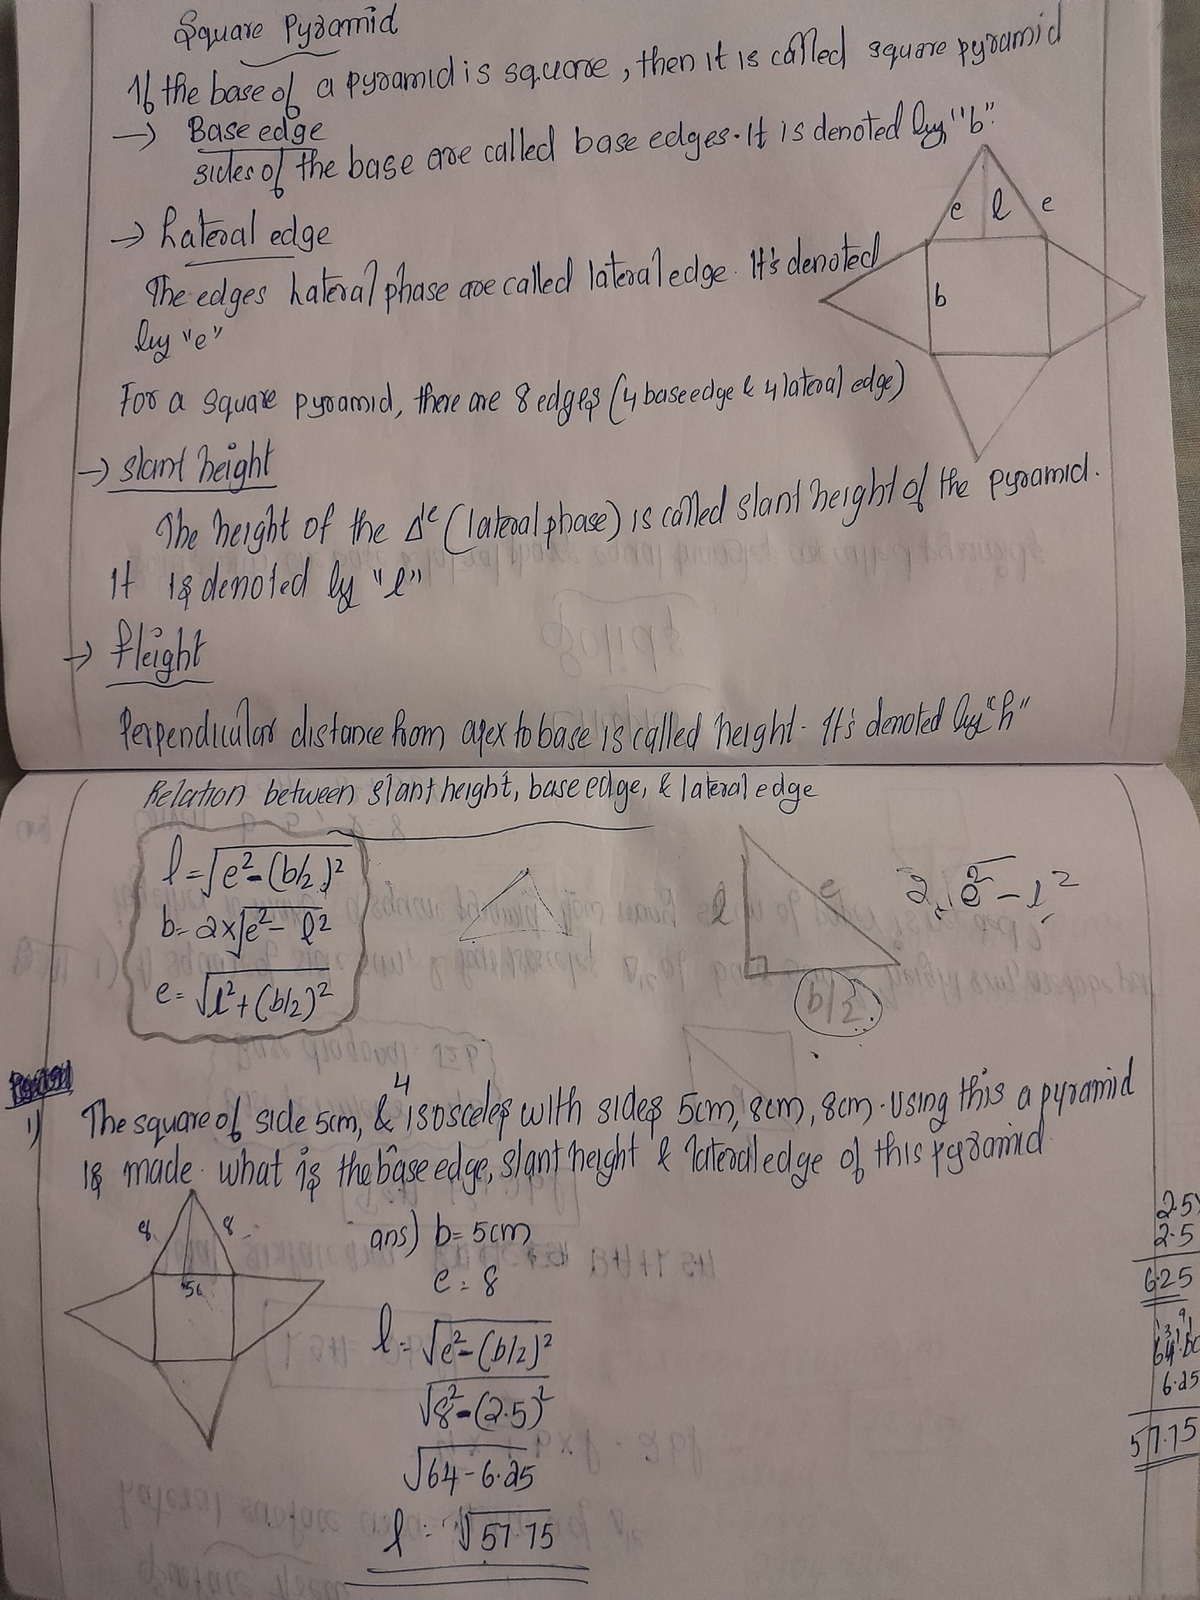 Square Pyramid
If the base of a pyramid is square, then it is called square pyramid
→ Base edge
sides of the base are called base edges. It is denoted by "b".
e l e
b
→ Lateral edge
The edges lateral phase are called lateral edge. It's denoted
by "e"
For a square pyramid, there are 8 edges (4 base edge & 4 lateral edge)
→ slant height
The height of the Δle (lateral phase) is called slant height of the pyramid.
It is denoted by "l"
→ Height
Perpendicular distance from apex to base is called height. It's denoted by "h"
Relation between slant height, base edge, & lateral edge
l = √e² - (b/2)²
b = 2×√e² - l²
e = √l² + (b/2)²
l e
b/2
2 × √e² - l²
1) The square of side 5cm, & 4 isosceles with sides 5cm, 8cm, 8cm. Using this a pyramid
is made. what is the base edge, slant height & lateral edge of this pyramid
8 8
5
ans) b = 5cm
e = 8
l = √e² - (b/2)²
√8² - (2.5)²
√64 - 6.25
l = √57.75
2.5×
2.5
6.25
6.25
57.75